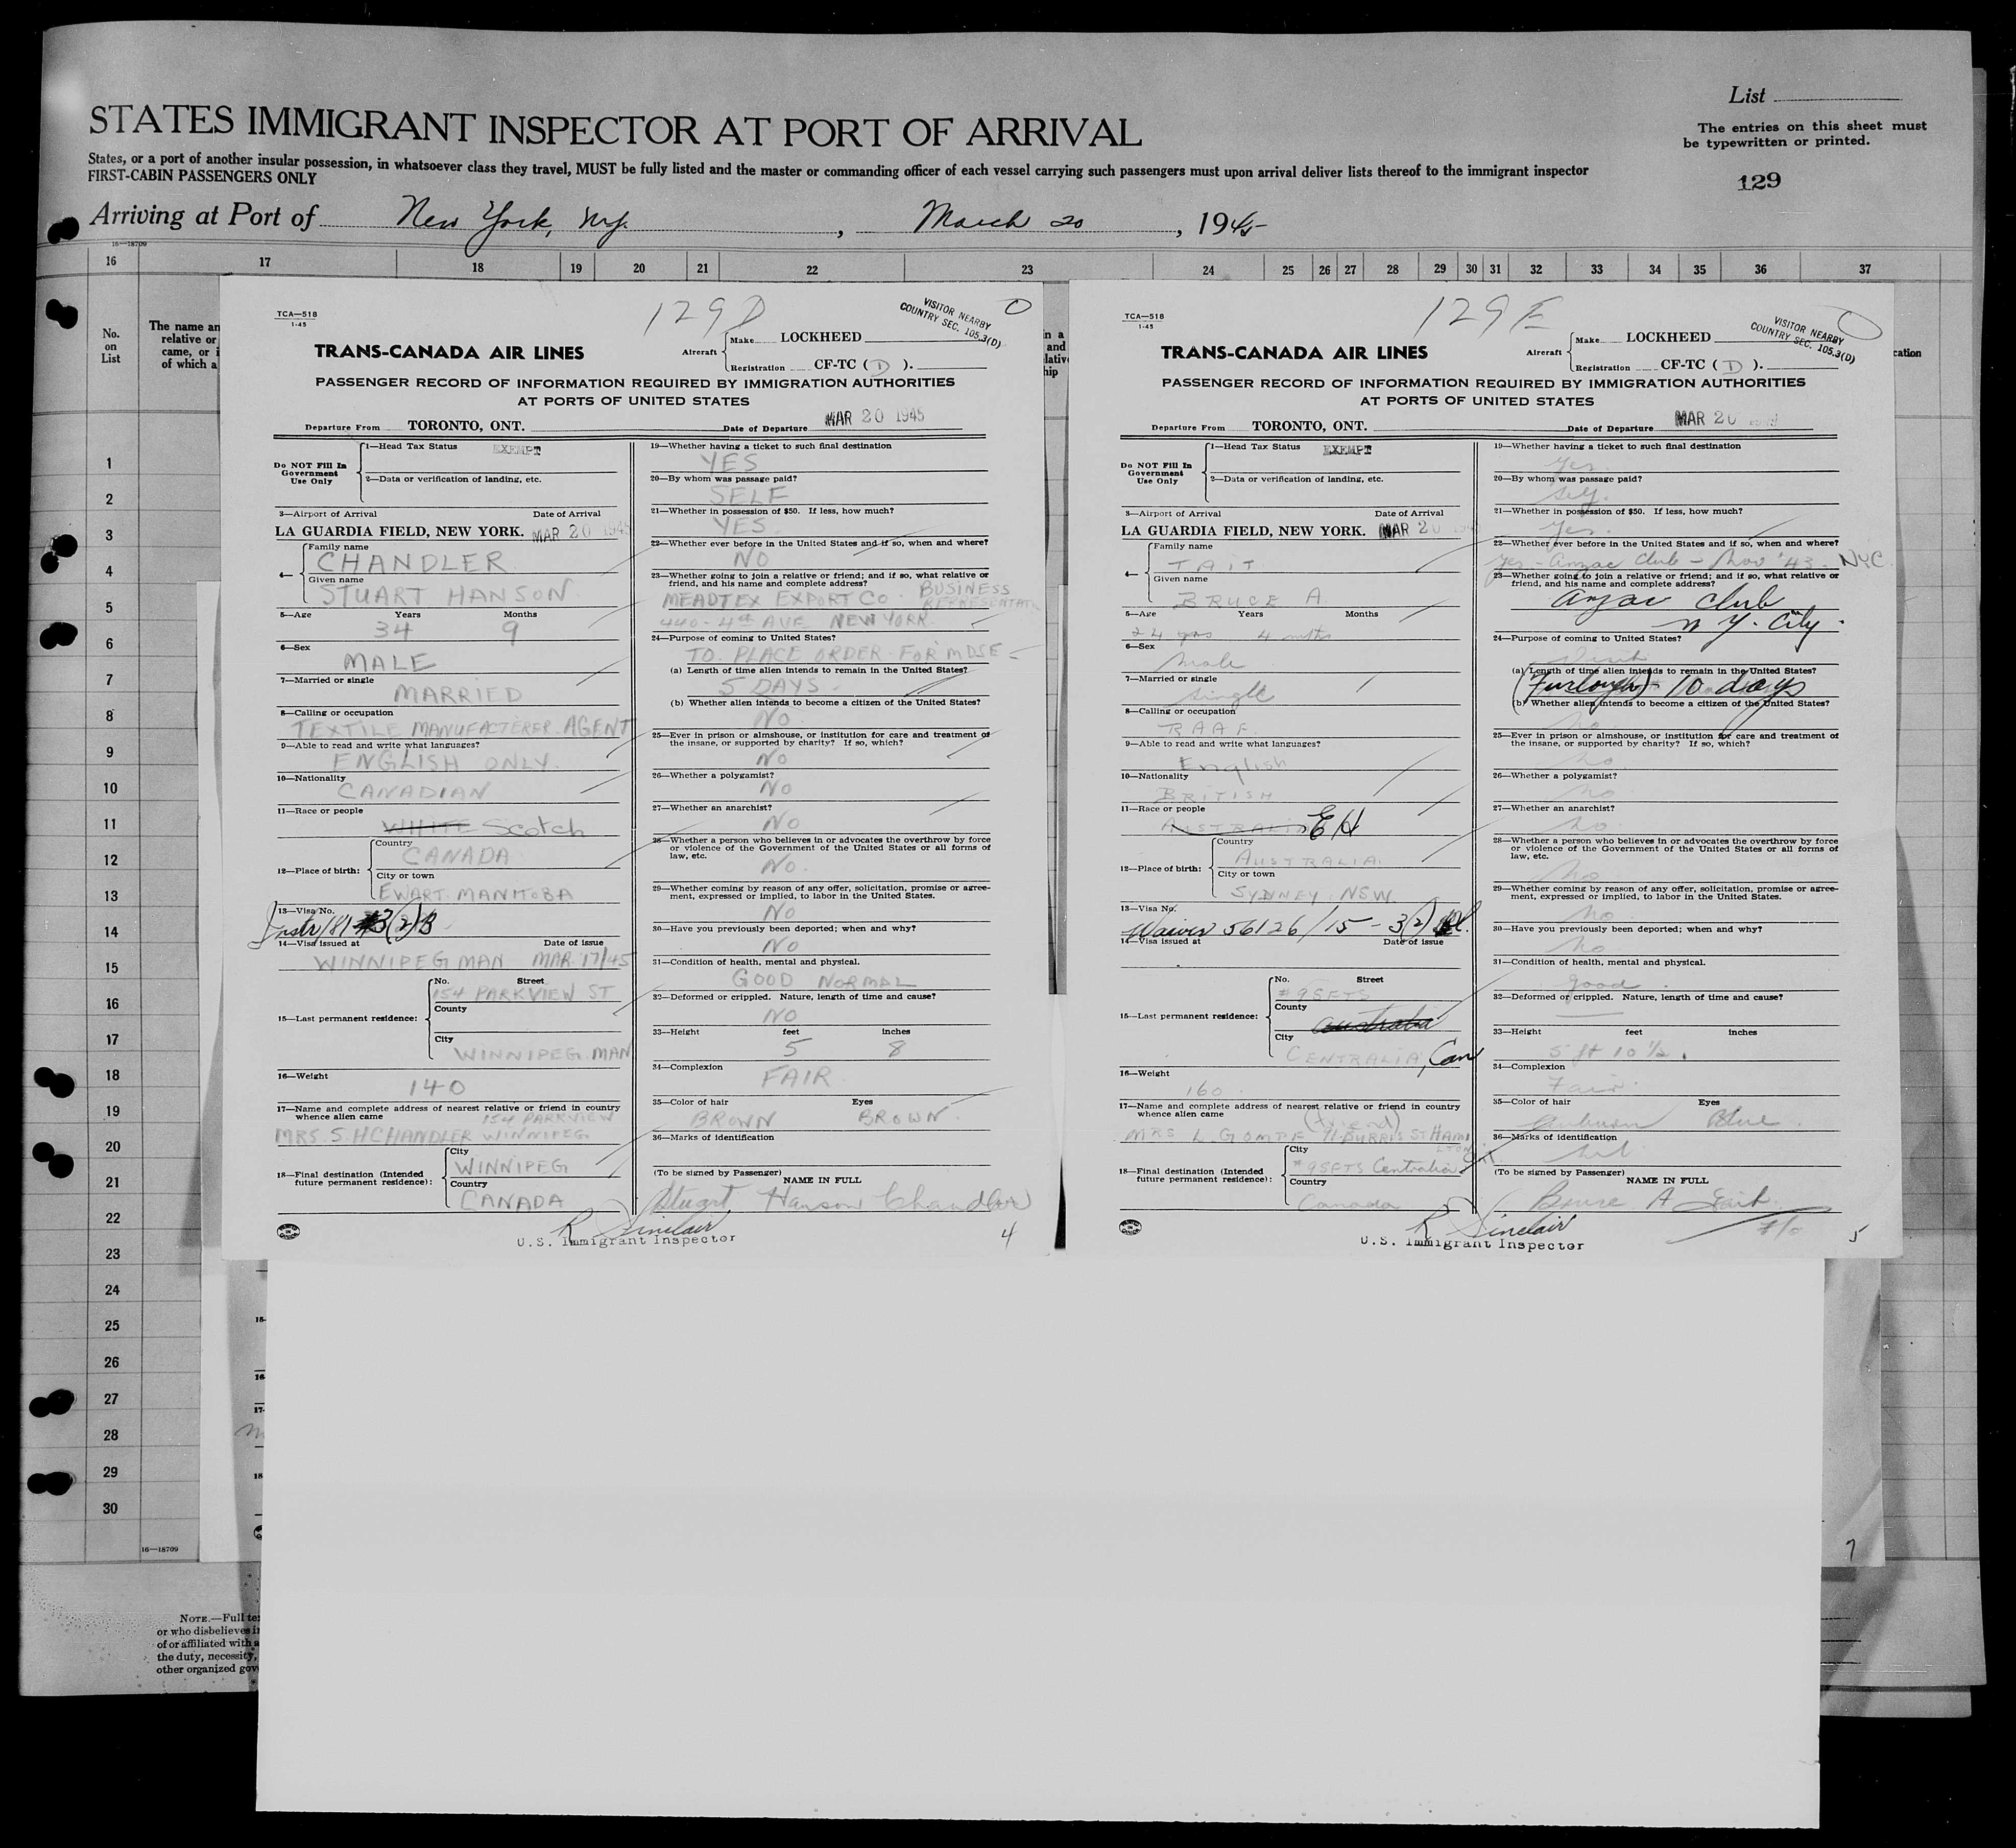 List
STATES IMMIGRANT INSPECTOR AT PORT OF ARRIVAL
The entries on this sheet must
be typewritten or printed.
States, or a port of another insular possession, in whatsoever class they travel, MUST be fully listed and the master or commanding officer of each vessel carrying such passengers must upon arrival deliver lists thereof to the immigrant inspector
FIRST-CABIN PASSENGERS ONLY
129
Arriving at Port of New York, N.Y. , March 20 , 1945
16—18709
16 17 18 19 20 21 22 23 24 25 26 27 28 29 30 31 32 33 34 35 36 37
No.
on
List
The name an
relative or
came, or i
of which a
1
2
3
4
5
6
7
8
9
10
11
12
13
14
15
16
17
18
19
20
21
22
23
24
25
26
27
28
29
30
16—18709
NOTE.—Full te
or who disbelieves i
of or affiliated with a
the duty, necessity,
other organized gov
129D
VISITOR NEARBY
COUNTRY SEC. 105.3(D)
TCA—518
1-45
TRANS-CANADA AIR LINES
Aircraft
Make LOCKHEED
Registration CF-TC ( D ).
PASSENGER RECORD OF INFORMATION REQUIRED BY IMMIGRATION AUTHORITIES
AT PORTS OF UNITED STATES
Departure From TORONTO, ONT. Date of Departure MAR 20 1945
Do NOT Fill In
Government
Use Only
1—Head Tax Status EXEMPT
2—Data or verification of landing, etc.
3—Airport of Arrival Date of Arrival
LA GUARDIA FIELD, NEW YORK. MAR 20 1945
4—
Family name
CHANDLER
Given name
STUART HANSON
5—Age Years Months
34 9
6—Sex
MALE
7—Married or single
MARRIED
8—Calling or occupation
TEXTILE MANUFACTERER AGENT
9—Able to read and write what languages?
ENGLISH ONLY.
10—Nationality
CANADIAN
11—Race or people
WHITE Scotch
12—Place of birth:
Country
CANADA
City or town
EWART. MANITOBA
13—Visa No.
14—Visa issued at Date of issue
WINNIPEG MAN MAR 17/45
15—Last permanent residence:
No. Street
154 PARKVIEW ST
County
City
WINNIPEG. MAN
16—Weight
140
17—Name and complete address of nearest relative or friend in country
whence alien came
154 PARKVIEW
MRS. S. H CHANDLER WINNIPEG
18—Final destination (Intended
future permanent residence):
City
WINNIPEG
Country
CANADA
19—Whether having a ticket to such final destination
YES
20—By whom was passage paid?
SELF
21—Whether in possession of $50. If less, how much?
YES
22—Whether ever before in the United States and if so, when and where?
NO
23—Whether going to join a relative or friend; and if so, what relative or
friend, and his name and complete address?
MEADTEX EXPORT CO. BUSINESS
440 - 4th AVE NEW YORK.
24—Purpose of coming to United States?
TO PLACE ORDER FOR MDSE
(a) Length of time alien intends to remain in the United States?
5 DAYS.
(b) Whether alien intends to become a citizen of the United States?
NO.
25—Ever in prison or almshouse, or institution for care and treatment of
the insane, or supported by charity? If so, which?
NO
26—Whether a polygamist?
NO
27—Whether an anarchist?
NO
28—Whether a person who believes in or advocates the overthrow by force
or violence of the Government of the United States or all forms of
law, etc.
NO.
29—Whether coming by reason of any offer, solicitation, promise or agree-
ment, expressed or implied, to labor in the United States.
NO
30—Have you previously been deported; when and why?
NO
31—Condition of health, mental and physical.
GOOD NORMAL
32—Deformed or crippled. Nature, length of time and cause?
NO
33—Height feet inches
5 8
34—Complexion
FAIR.
35—Color of hair Eyes
BROWN BROWN.
36—Marks of identification
(To be signed by Passenger)
NAME IN FULL
Stuart Hanson Chandler
R Sinclair
U.S. Immigrant Inspector
4
129E
VISITOR NEARBY
COUNTRY SEC. 105.3(D)
TCA—518
1-45
TRANS-CANADA AIR LINES
Aircraft
Make LOCKHEED
Registration CF-TC ( D ).
PASSENGER RECORD OF INFORMATION REQUIRED BY IMMIGRATION AUTHORITIES
AT PORTS OF UNITED STATES
Departure From TORONTO, ONT. Date of Departure MAR 20
Do NOT Fill In
Government
Use Only
1—Head Tax Status EXEMPT
2—Data or verification of landing, etc.
3—Airport of Arrival Date of Arrival
LA GUARDIA FIELD, NEW YORK. MAR 20
4—
Family name
TAIT
Given name
BRUCE A.
5—Age Years Months
24 yrs 4 mths
6—Sex
Male
7—Married or single
Single
8—Calling or occupation
RAAF.
9—Able to read and write what languages?
English
10—Nationality
BRITISH
11—Race or people
EH
12—Place of birth:
Country
AUSTRALIA.
City or town
SYDNEY. NSW.
13—Visa No.
Waiver 56126/15 - 3(2)
14—Visa issued at Date of issue
15—Last permanent residence:
No. Street
#9SFTS
County
Australia
City
CENTRALIA, Can
16—Weight
160.
17—Name and complete address of nearest relative or friend in country
whence alien came
(friend)
MRS L. GOMPF 91 BURRIS ST HAMILTON
18—Final destination (Intended
future permanent residence):
City
#9SFTS Centralia
Country
Canada
19—Whether having a ticket to such final destination
Yes
20—By whom was passage paid?
Self.
21—Whether in possession of $50. If less, how much?
Yes.
22—Whether ever before in the United States and if so, when and where?
Yes - Anzac Club - Nov '43 - NYC.
23—Whether going to join a relative or friend; and if so, what relative or
friend, and his name and complete address?
Anzac Club
N.Y. City.
24—Purpose of coming to United States?
Visit
(a) Length of time alien intends to remain in the United States?
(Furlough) - 10 days
(b) Whether alien intends to become a citizen of the United States?
No
25—Ever in prison or almshouse, or institution for care and treatment of
the insane, or supported by charity? If so, which?
No
26—Whether a polygamist?
No
27—Whether an anarchist?
No
28—Whether a person who believes in or advocates the overthrow by force
or violence of the Government of the United States or all forms of
law, etc.
No
29—Whether coming by reason of any offer, solicitation, promise or agree-
ment, expressed or implied, to labor in the United States.
No
30—Have you previously been deported; when and why?
No
31—Condition of health, mental and physical.
good.
32—Deformed or crippled. Nature, length of time and cause?
33—Height feet inches
5 ft 10 ½.
34—Complexion
Fair.
35—Color of hair Eyes
Auburn Blue.
36—Marks of identification
Nil
(To be signed by Passenger)
NAME IN FULL
Bruce A Tait.
F/O
R Sinclair
U.S. Immigrant Inspector
5
7